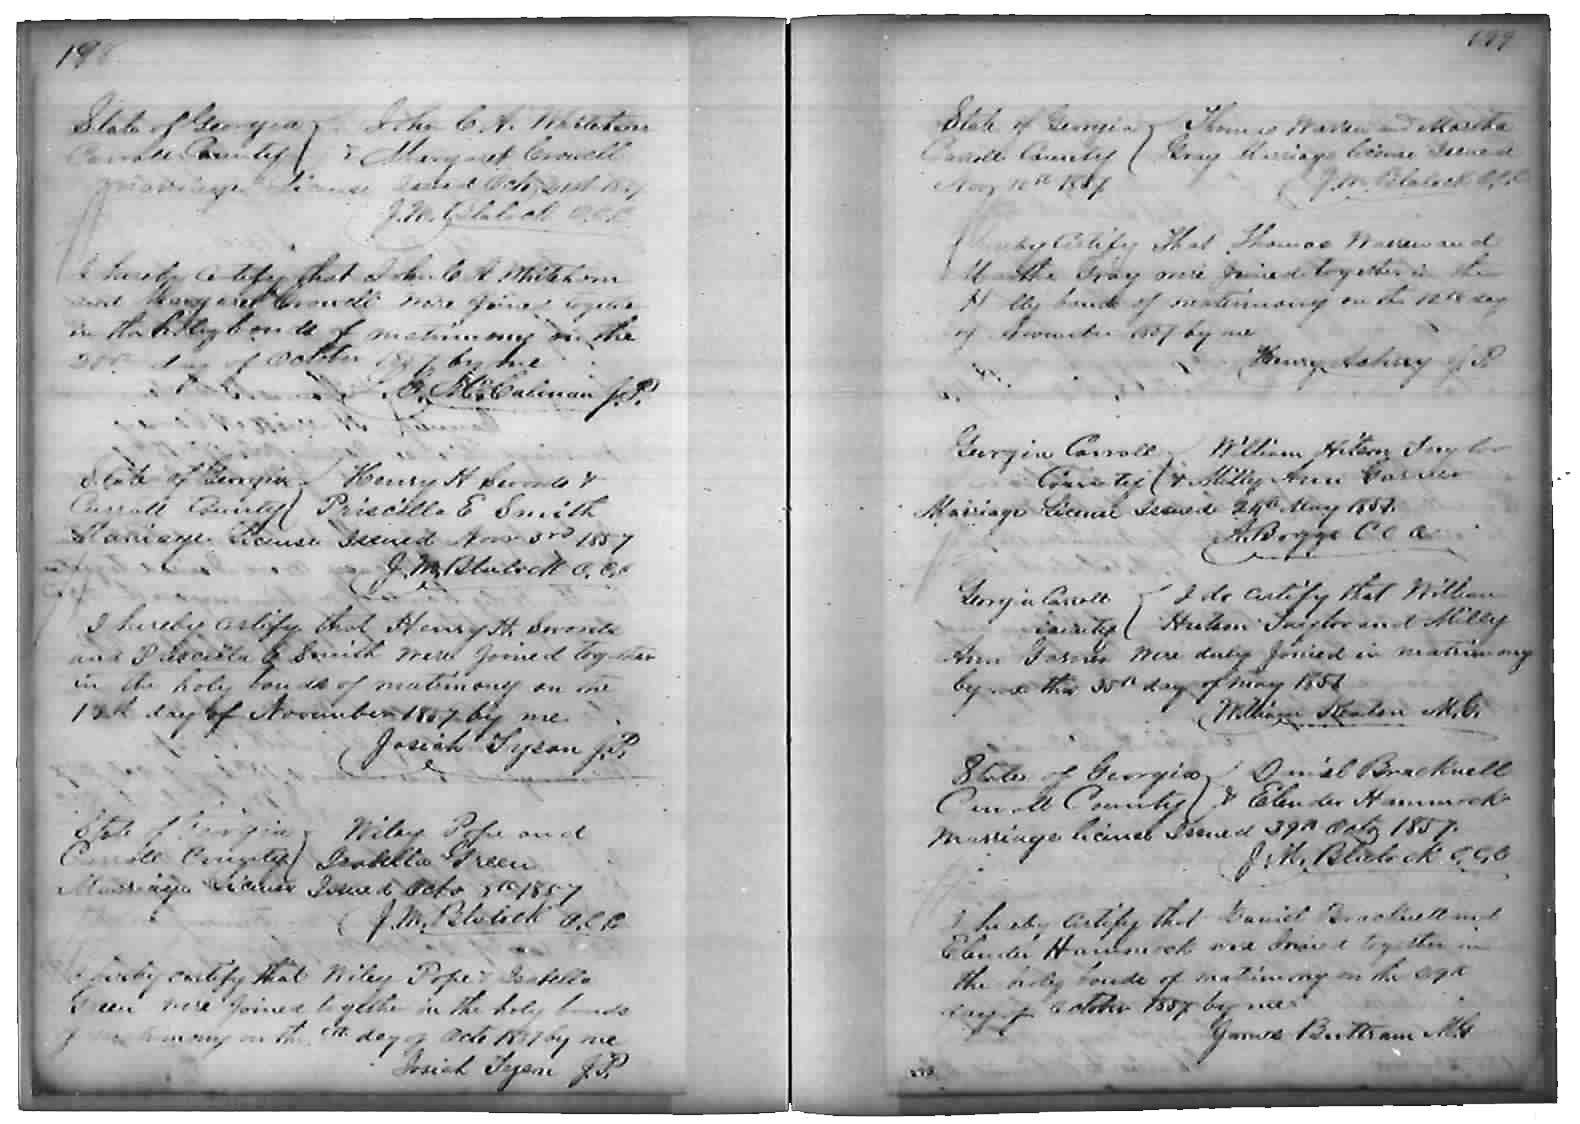 198
State of Georgia John C. A. Whitehorn
Carroll County & Margaret Crowell
Marriage License Issued Octo 1857
J. M. Blalock C.C.O.
I hereby certify that John C A Whitehorn
and Margaret Crowell were joined together
in the holy bonds of matrimony on the
20th day of October 1857 by me
McCalman J.P.
State of Georgia Henry H Swords &
Carroll County Priscilla E Smith
Marriage License Issued Nov 3rd 1857
J. M. Blalock C.C.O
I hereby certify that Henry H. Swords
and Priscilla E Smith were joined together
in the holy bonds of matrimony on the
15th day of November 1857 by me
Josiah Tyson J.P.
State of Georgia Wiley Pope and
Carroll County Isabella Green
Marriage License Issued Octo 1857
J. M. Blalock C.C.O
I hereby certify that Wiley Pope & Isabella
Green were joined together in the holy bonds
of matrimony on the day of Octo 1857 by me
Josiah Tyson J.P.
199
State of Georgia Thomas Warren and Martha
Carroll County Gray Marriage License Issued
Nov 12th 1857 J. M. Blalock C.C.O
I hereby Certify That Thomas Warren and
Martha Gray were joined together in the
Holy bonds of matrimony on the 12th day
of November 1857 by me
Henry J.P.
Georgia Carroll William Hutson Taylor
County & Milly Ann Garner
Marriage License Issued 24th May 1858.
A. Boggs C C O
Georgia Carroll I do certify that William
County Hutson Taylor and Milly
Ann Garner were duly joined in matrimony
by me this 30th day of May 1858
William M.G.
State of Georgia Daniel Bracknell
Carroll County & Elender Hammock
Marriage License Issued 29th Octo 1857.
J. M. Blalock C.C.O
I hereby certify that Daniel Bracknell and
Elender Hammock were Joined together in
the holy bonds of matrimony on the 29th
day of October 1857 by me
James Buttram M.G